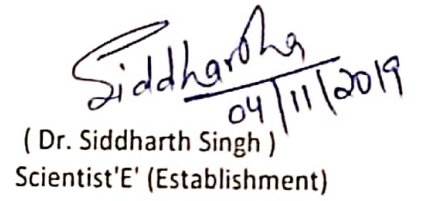 Siddhartha
04/11/2019
( Dr. Siddharth Singh )
Scientist'E' (Establishment)